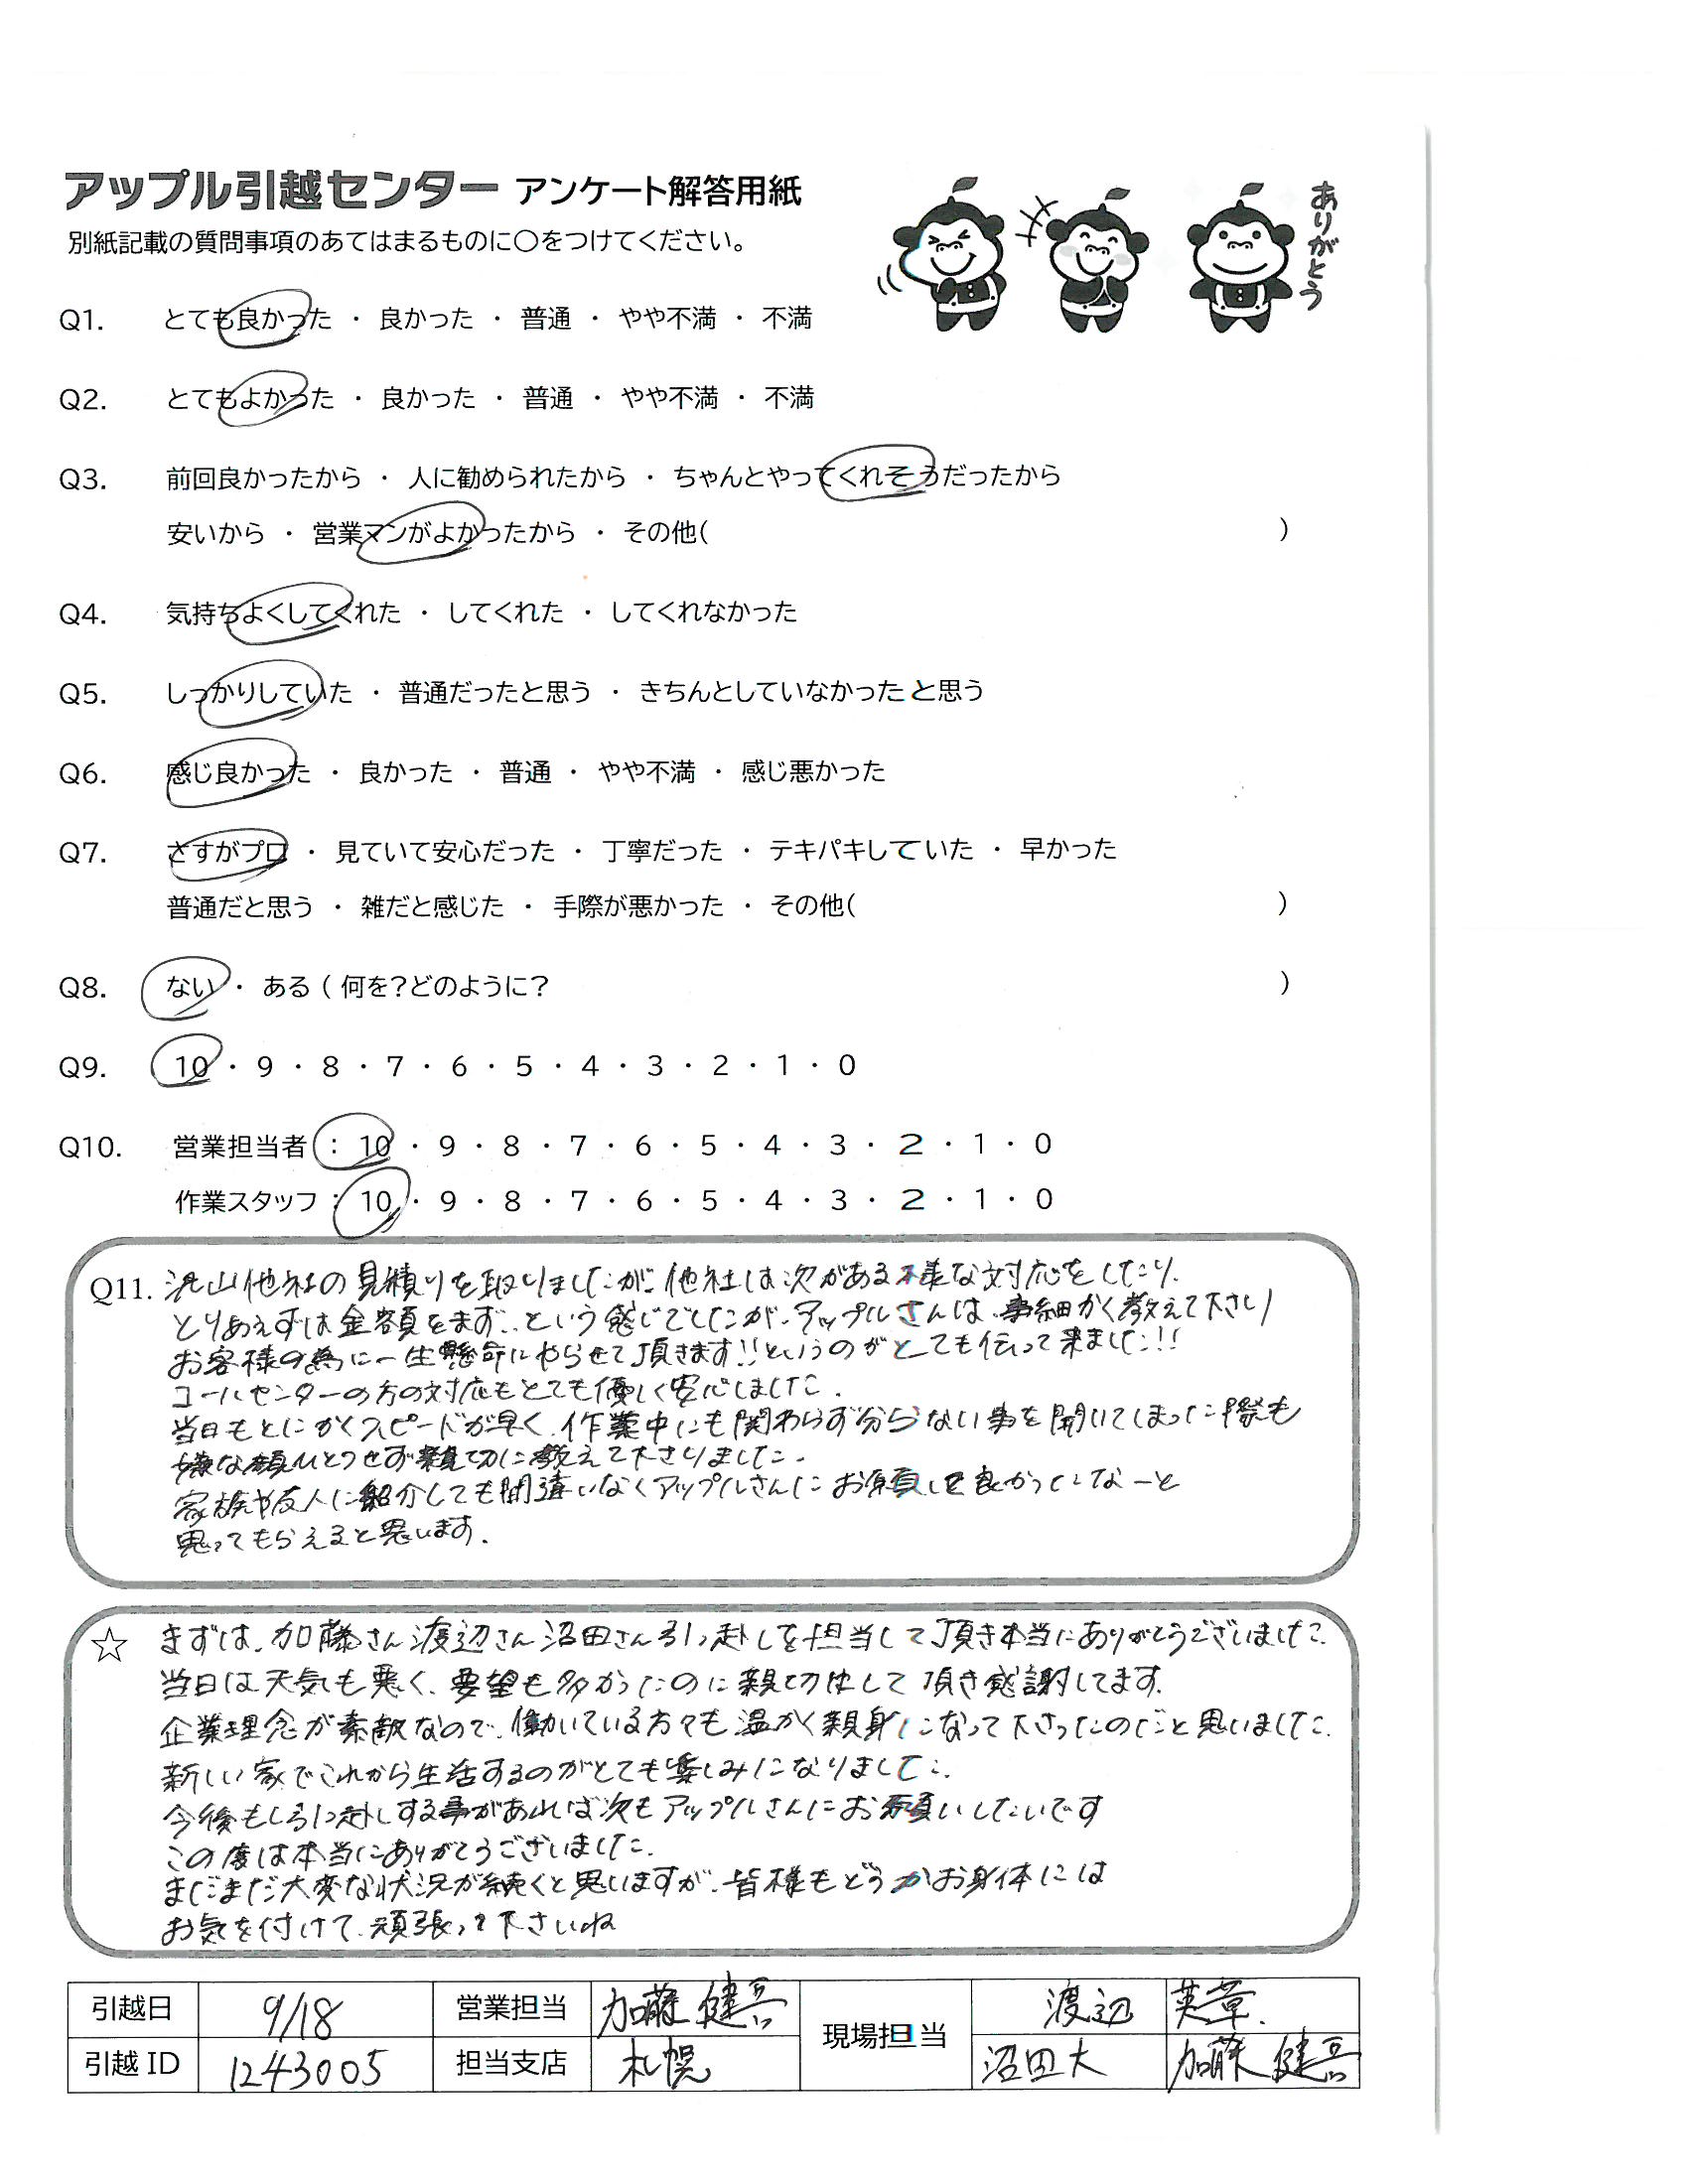 アップル引越センター アンケート解答用紙
ありがとう
別紙記載の質問事項のあてはまるものに○をつけてください。
Q1. とても良かった ・ 良かった ・ 普通 ・ やや不満 ・ 不満
Q2. とてもよかった ・ 良かった ・ 普通 ・ やや不満 ・ 不満
Q3. 前回良かったから ・ 人に勧められたから ・ ちゃんとやってくれそうだったから
安いから ・ 営業マンがよかったから ・ その他( )
Q4. 気持ちよくしてくれた ・ してくれた ・ してくれなかった
Q5. しっかりしていた ・ 普通だったと思う ・ きちんとしていなかったと思う
Q6. 感じ良かった ・ 良かった ・ 普通 ・ やや不満 ・ 感じ悪かった
Q7. さすがプロ ・ 見ていて安心だった ・ 丁寧だった ・ テキパキしていた ・ 早かった
普通だと思う ・ 雑だと感じた ・ 手際が悪かった ・ その他( )
Q8. ない ・ ある ( 何を?どのように? )
Q9. 10 ・ 9 ・ 8 ・ 7 ・ 6 ・ 5 ・ 4 ・ 3 ・ 2 ・ 1 ・ 0
Q10. 営業担当者 : 10 ・ 9 ・ 8 ・ 7 ・ 6 ・ 5 ・ 4 ・ 3 ・ 2 ・ 1 ・ 0
作業スタッフ : 10 ・ 9 ・ 8 ・ 7 ・ 6 ・ 5 ・ 4 ・ 3 ・ 2 ・ 1 ・ 0
Q11. 沢山他社の見積りを取りましたが、他社は次がある様な対応をしたり、
とりあえずは金額をまず、、という感じでしたが、アップルさんは、事細かく教えて下さり
お客様の為に一生懸命にやらせて頂きます!!というのがとても伝って来ました!!
コールセンターの方の対応もとても優しく安心しました.
当日もとにかくスピードが早く、作業中にも関わらず分らない事を聞いてしまった際も
嫌な顔ひとつせず親切に教えて下さりました.
家族や友人に紹介しても間違いなくアップルさんにお願して良かったなーと
思ってもらえると思います.
☆ まずは、加藤さん渡辺さん沼田さん引っ越しを担当して頂き本当にありがとうございました.
当日は天気も悪く、要望も多かったのに親切にして頂き感謝してます.
企業理念が素敵なので、働いている方々も温かく親身になって下さったのだと思いました.
新しい家でこれから生活するのがとても楽しみになりました.
今後もし引っ越しする事があれば次もアップルさんにお願いしたいです
この度は本当にありがとうございました.
まだまだ大変な状況が続くと思いますが、皆様もどうかお身体には
お気を付けて、頑張って下さいね
引越日 9/18 営業担当 加藤 健吾 現場担当 渡辺 英章.
引越 ID 1243005 担当支店 札幌 沼田大 加藤 健吾